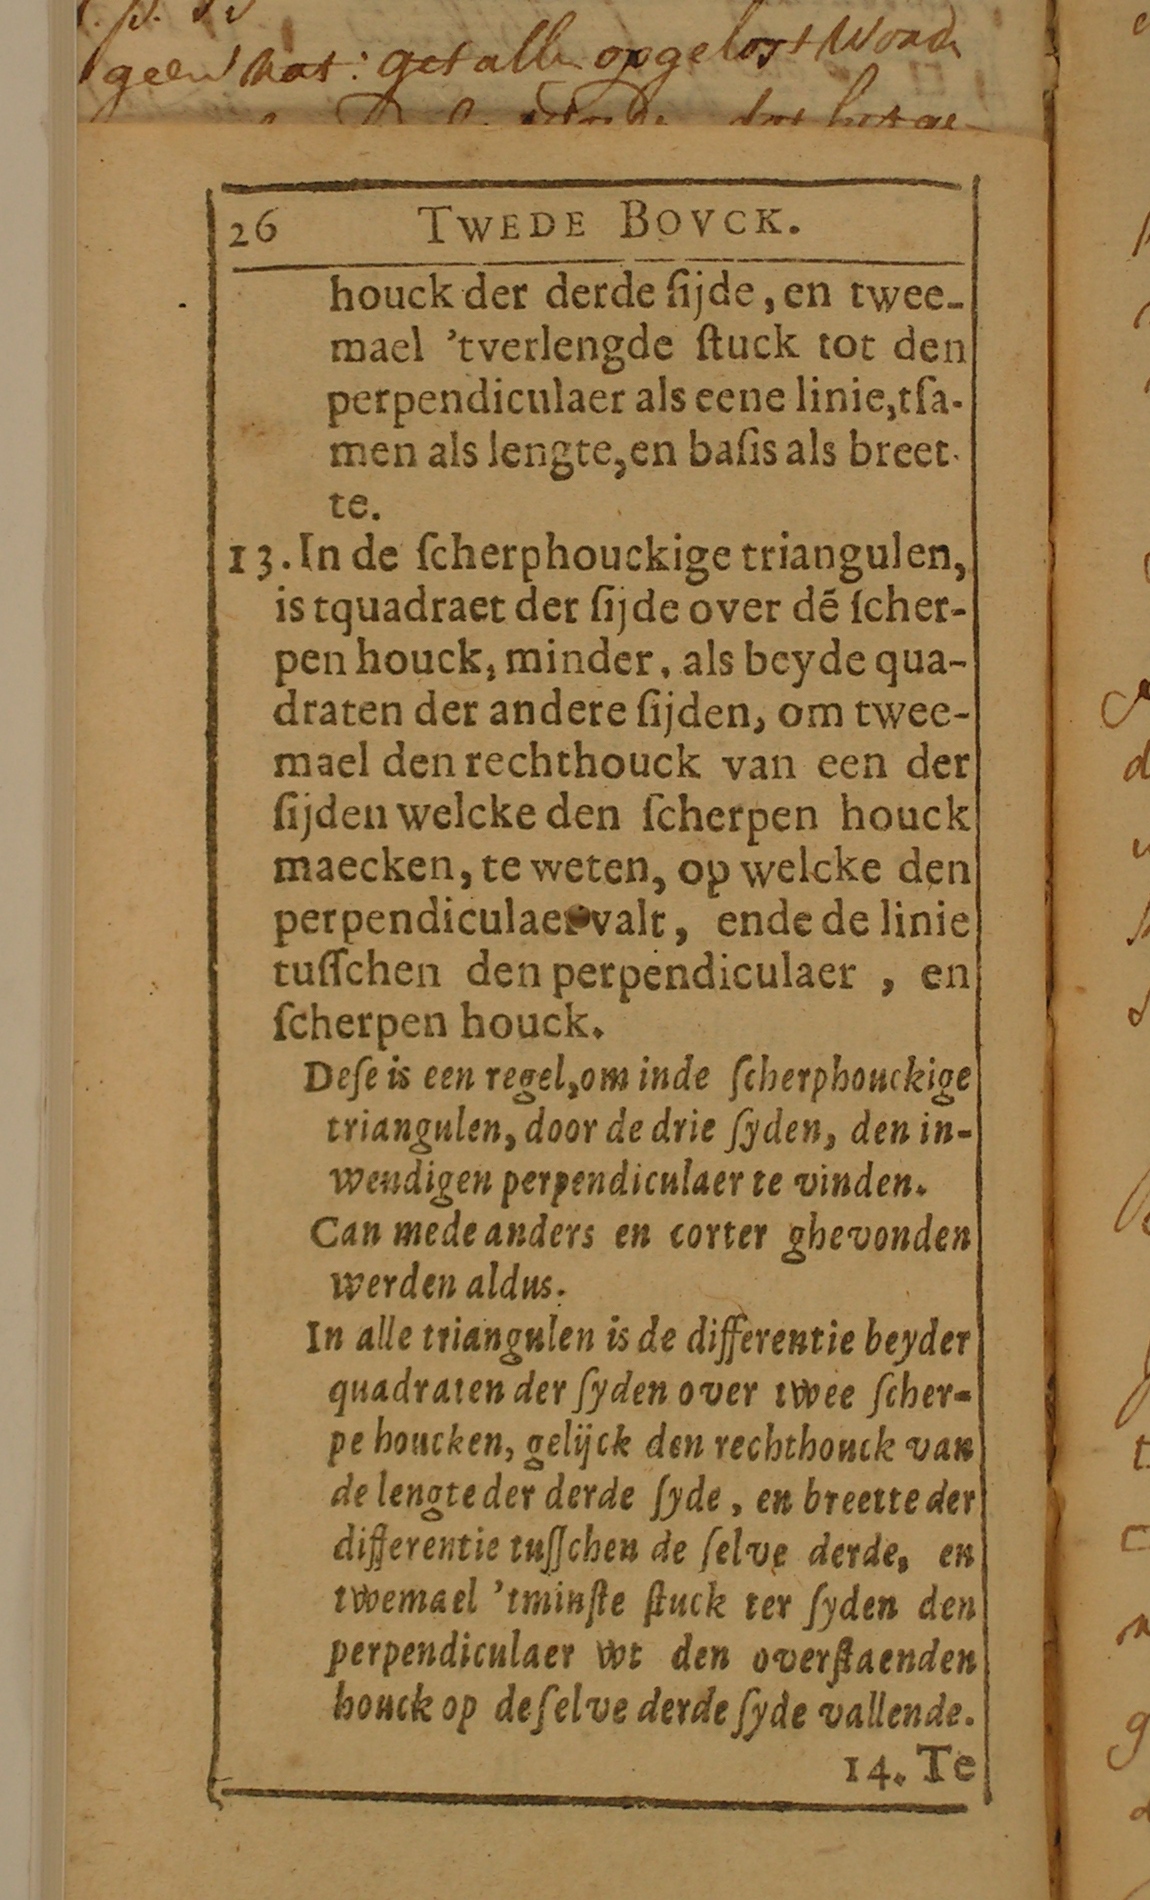 geen hat: getallen opgelost
26 TWEDE BOVCK.
houck der derde ſijde, en twee-
mael 'tverlengde ſtuck tot den
perpendiculaer als eene linie, tſa-
men als lengte, en baſis als breet-
te.
13. In de ſcherphouckige triangulen,
is tquadraet der ſijde over dē ſcher-
pen houck, minder, als beyde qua-
draten der andere ſijden, om twee-
mael den rechthouck van een der
ſijden welcke den ſcherpen houck
maecken, te weten, op welcke den
perpendiculaer valt, ende de linie
tuſſchen den perpendiculaer, en
ſcherpen houck.
Deſe is een regel, om inde ſcherphouckige
triangulen, door de drie ſyden, den in-
wendigen perpendiculaer te vinden.
Can mede anders en corter ghevonden
werden aldus.
In alle triangulen is de differentie beyder
quadraten der ſyden over twee ſcher-
pe houcken, gelijck den rechthouck van
de lengte der derde ſyde, en breette der
differentie tuſſchen de ſelve derde, en
twemael 'tminſte ſtuck ter ſyden den
perpendiculaer wt den overſtaenden
houck op de ſelve derde ſyde vallende.
14. Te